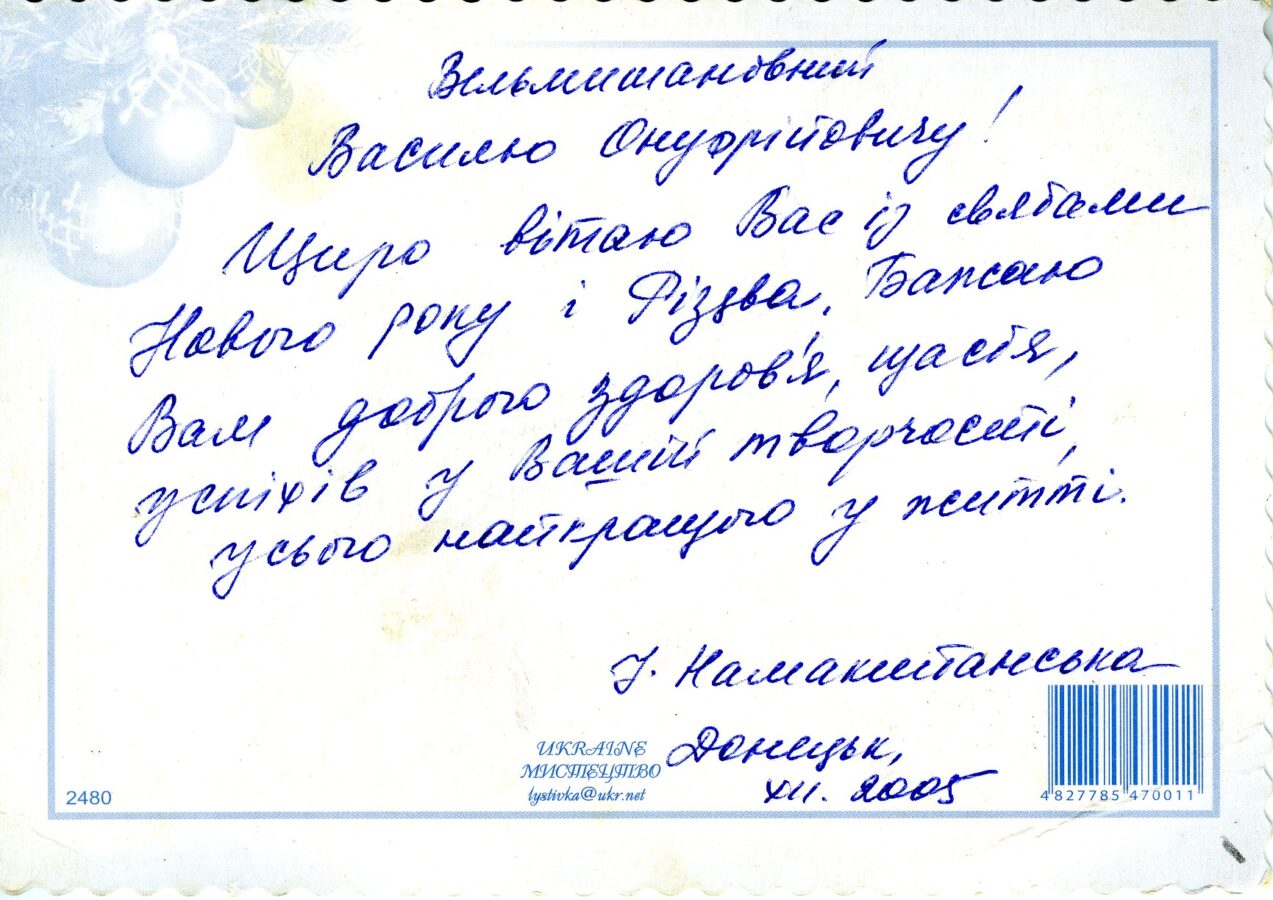 Вельмишановний
Василю Онуфрійовичу!
Щиро вітаю Вас із святами
Нового року і Різдва. Бажаю
Вам доброго здоров'я, щастя,
успіхів у Вашій творчості,
усього найкращого у житті.
І. Намакштанська
Донецьк,
XII. 2005
UKRAINE
МИСТЕЦТВО
lystivka@ukr.net
2480
4827785 470011